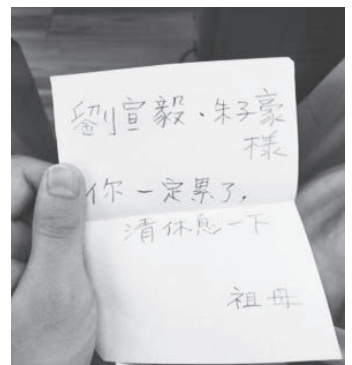 劉宣毅、朱子豪
様
你一定累了,
清休息一下
祖母